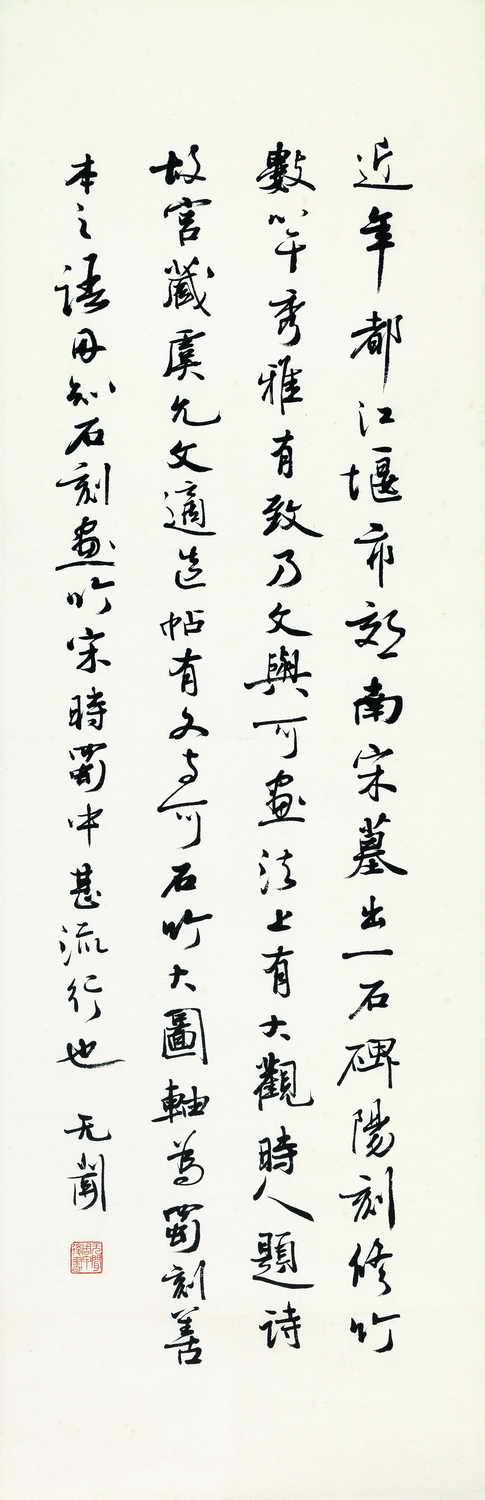 近年都江堰市郊南宋墓出一石碑陽刻修竹
數竿秀雅有致乃文與可畫法上有大觀時人題詩
故宮藏虞允文適造帖有文与可石竹大圖軸為蜀刻善
本之語因知石刻畫竹宋時蜀中甚流行也 无聞